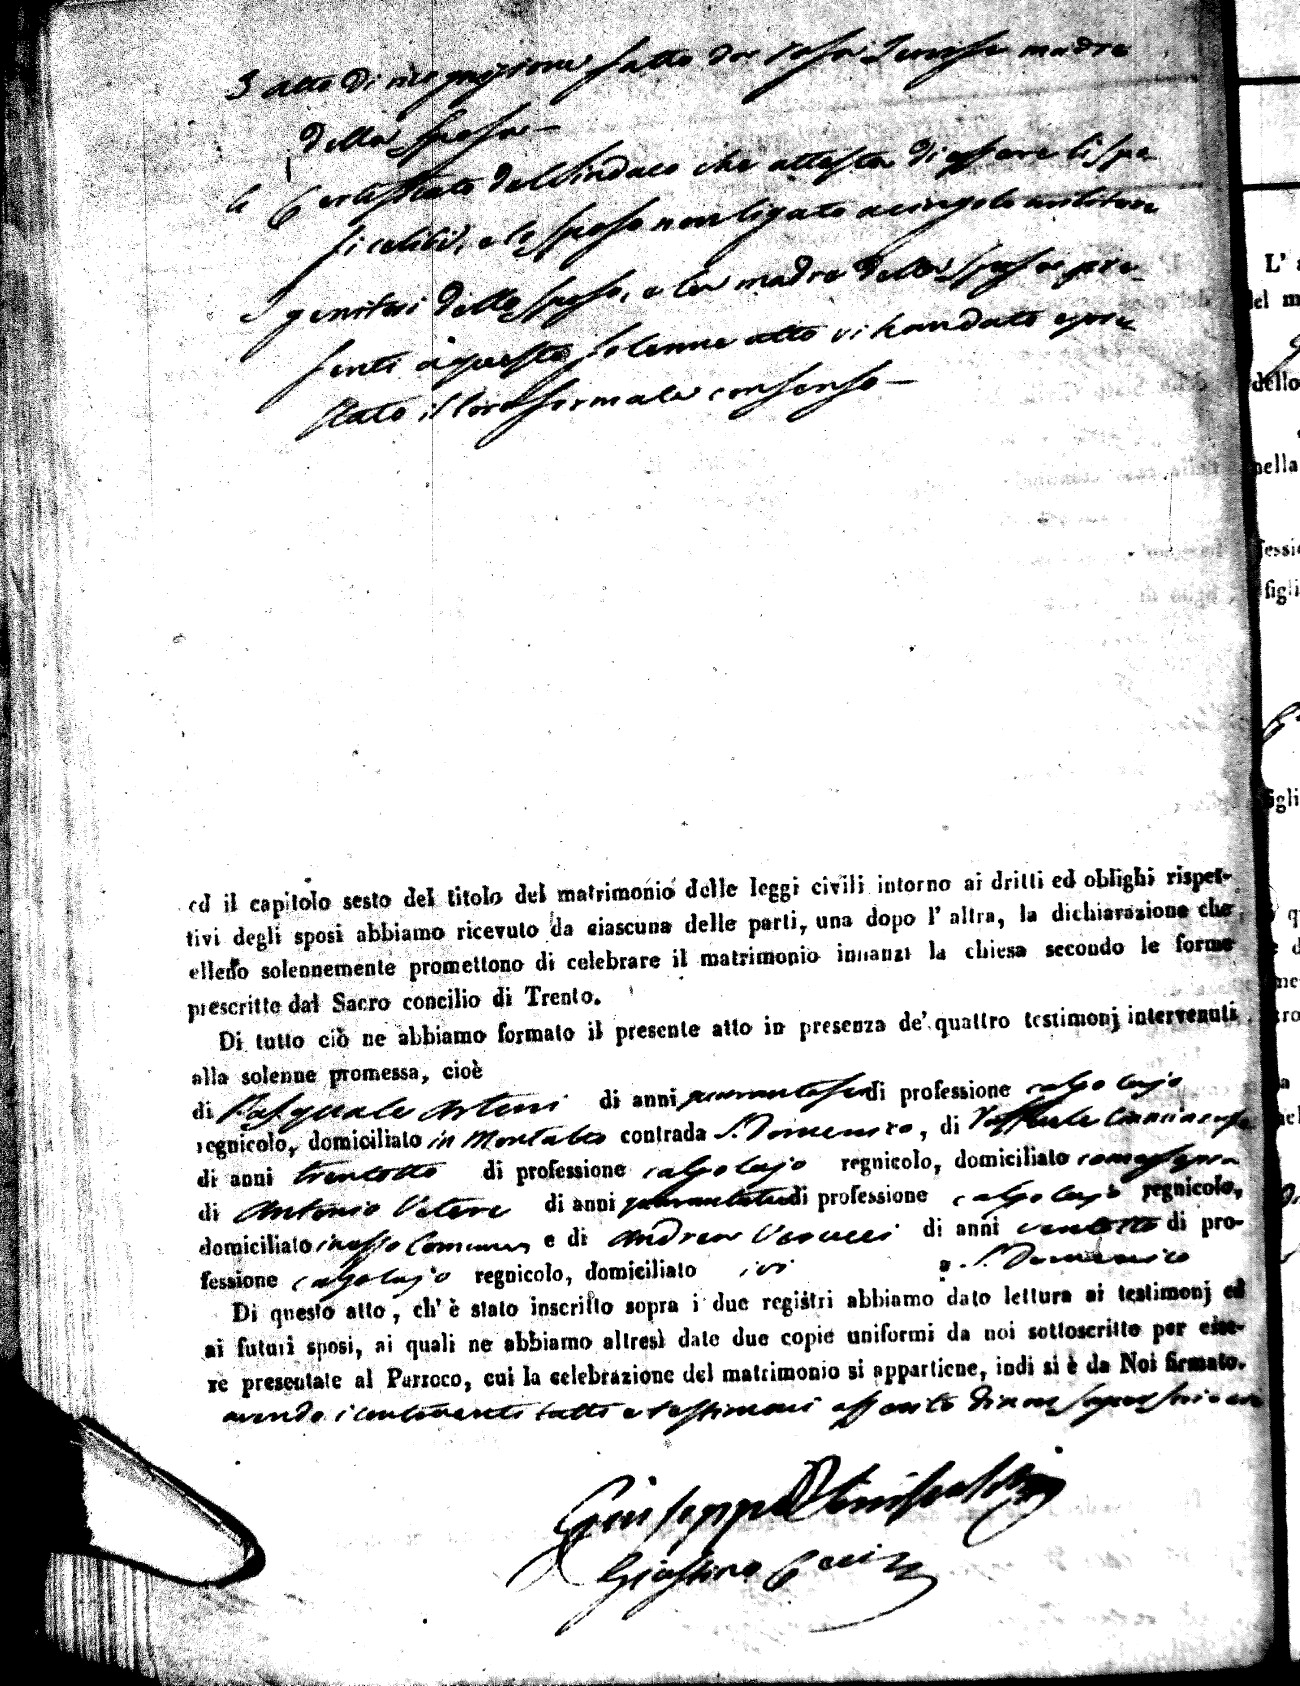 3 atto di ricognizione fatto da Rosa madre
della sposa —
4 Certificato del Sindaco che attesta di essere li spo-
si celibi, e lo sposo non ligato a cingolo militare
I genitori dello sposo, e la madre della sposa pre-
senti a questo solenne atto vi han dato e pre
stato il loro formale consenso —
ed il capitolo sesto del titolo del matrimonio delle leggi civili intorno ai dritti ed obblighi rispet-
tivi degli sposi abbiamo ricevuto da ciascuna delle parti, una dopo l' altra, la dichiarazione che
elleno solennemente promettono di celebrare il matrimonio innanzi la chiesa secondo le forme
prescritte dal Sacro concilio di Trento.
Di tutto ciò ne abbiamo formato il presente atto in presenza de' quattro testimonj intervenuti
alla solenne promessa, cioè
di Pasquale Artesi di anni di professione calzolajo
regnicolo, domiciliato in Montalto contrada S. Domenico, di Raffaele
di anni trentotto di professione calzolajo regnicolo, domiciliato come sopra
di Antonio Vetere di anni di professione calzolajo regnicolo,
domiciliato in esso Comune e di Andrea di anni ventotto di pro-
fessione calzolajo regnicolo, domiciliato ivi a S. Domenico
Di questo atto, ch' è stato inscritto sopra i due registri abbiamo dato lettura ai testimonj ed
ai futuri sposi, ai quali ne abbiamo altresì date due copie uniformi da noi sottoscritte per esse-
re presentate al Parroco, cui la celebrazione del matrimonio si appartiene, indi si è da Noi firmato.
avendo i contraenti tutti e testimoni asserito di non saper scrivere
Giuseppe
Giustino
L' a
del m
dello
nella
fessio
figli
figli